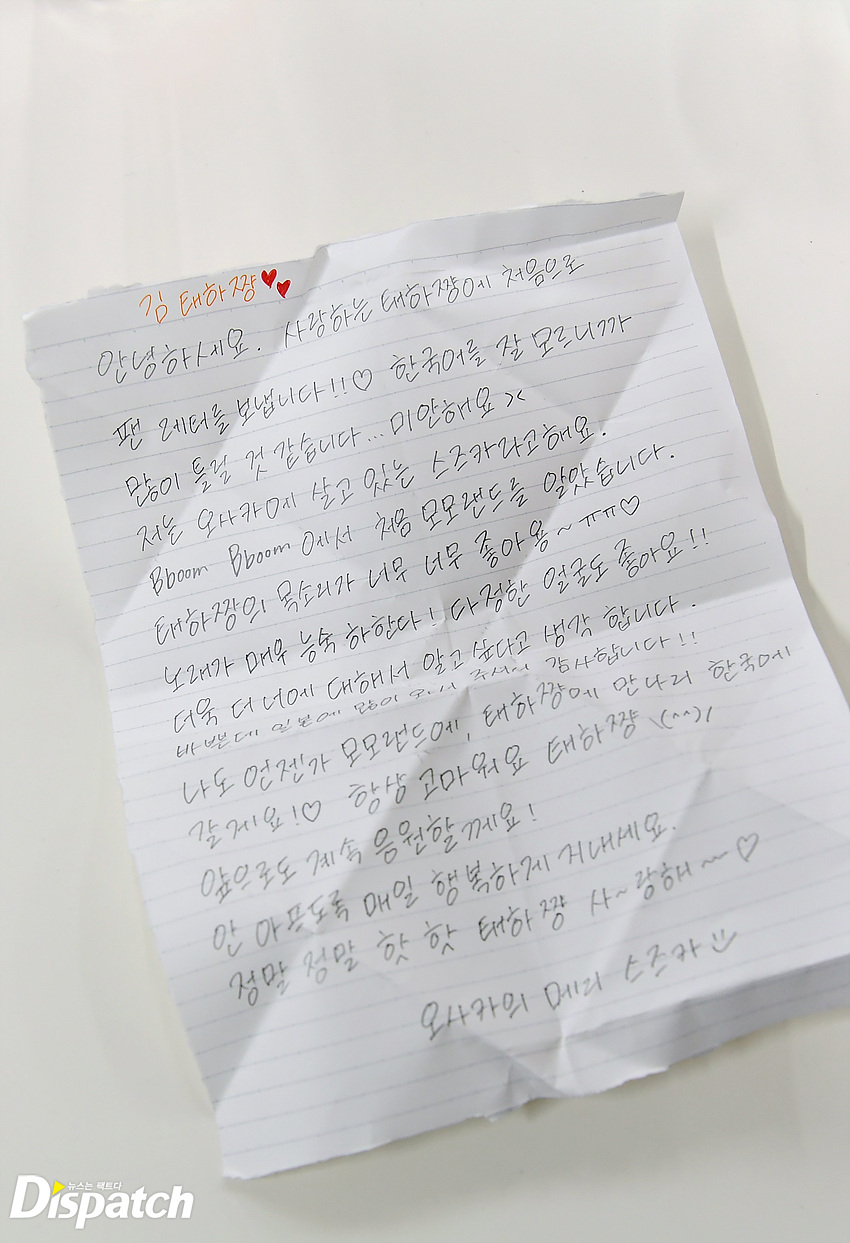 김태하쨩
안녕하세요. 사랑하는 태하쨩에 처음으로
팬 레터를 보냅니다!!♡ 한국어를 잘 모르니까
많이 틀릴 것 같습니다... 미안해요 ><
저는 오사카에 살고 있는 스즈카라고해요.
Bboom Bboom에서 처음 모모랜드를 알았습니다.
태하쨩의 목소리가 너무 너무 좋아용~ㅠㅠ♡
노래가 매우 능숙 하한다! 다정한 얼굴도 좋아요!!
더욱 더 너에 대해서 알고 싶다고 생각 합니다.
바쁜데 일본에 많이 와서 주셔서 감사합니다!!
나도 언젠가 모모랜드에, 태하쨩에 만나러 한국에
갈게요!♡ 항상 고마워요 태하쨩 \(^^)/
앞으로도 계속 응원할께요!
안 아프도록 매일 행복하게 지내세요.
정말 정말 핫 핫 태하쨩 사~랑해~~♡
오사카의 메리 스즈카
뉴스는 팩트다
Dispatch